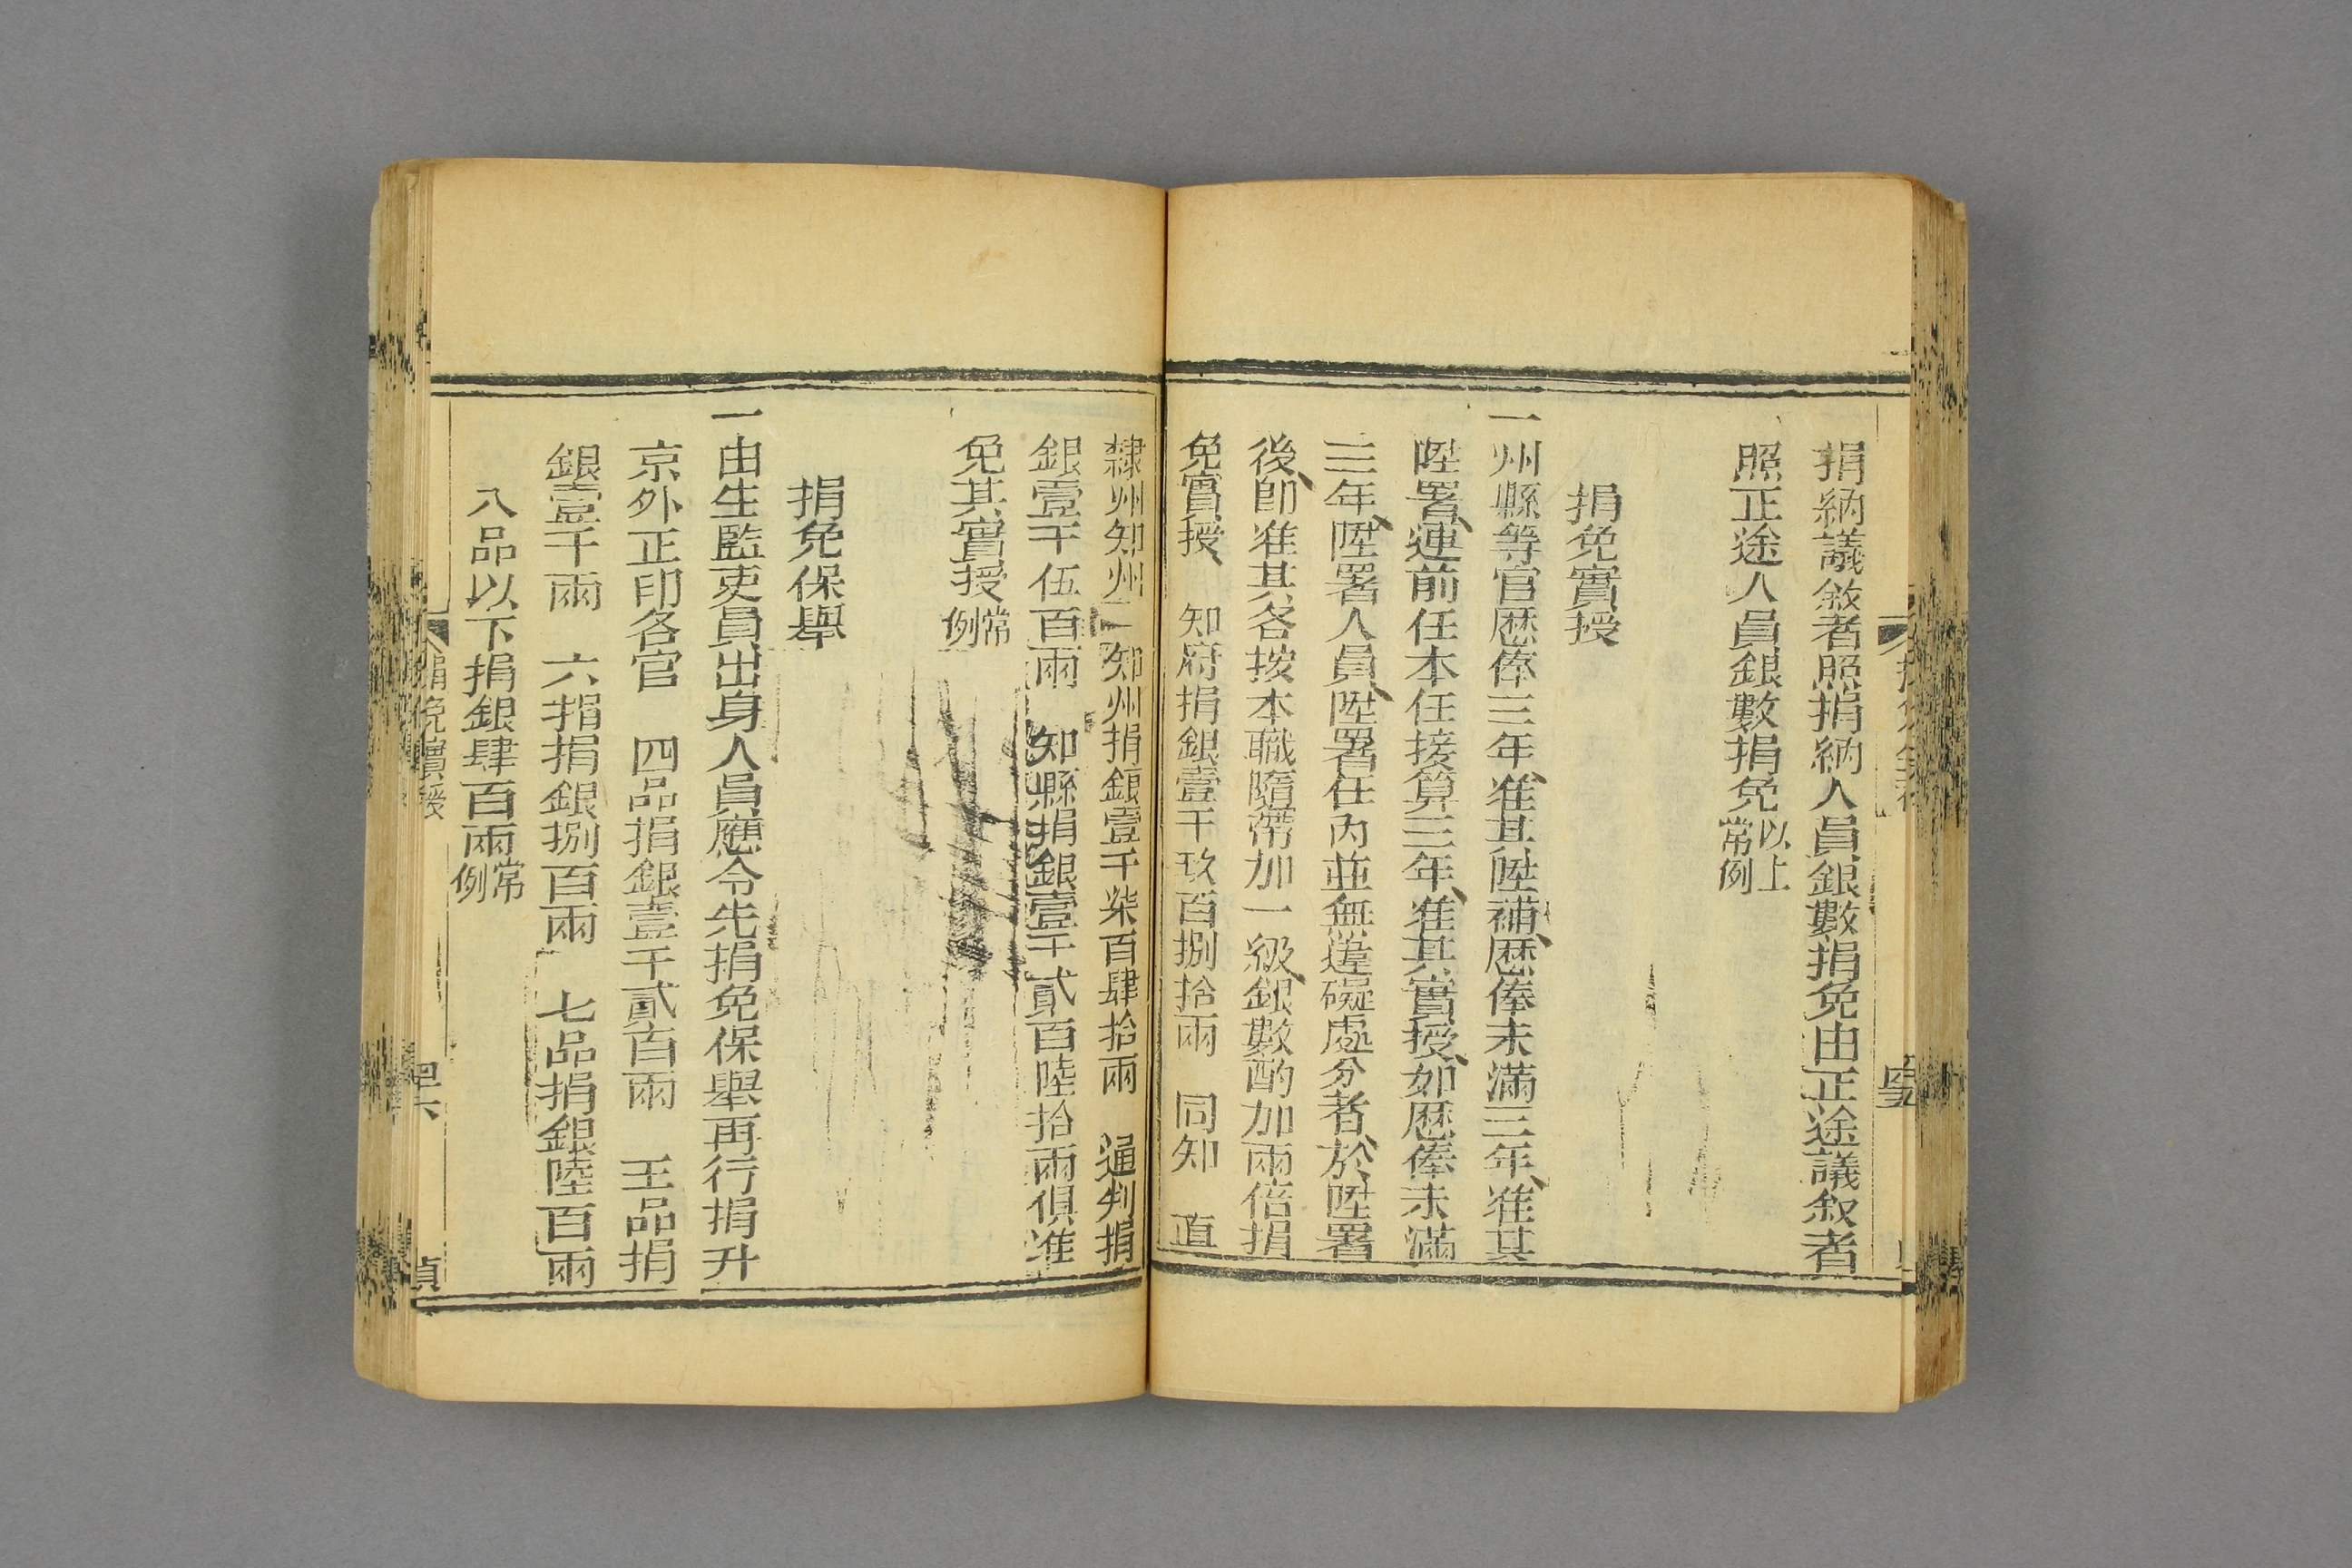 捐納議敘者照捐納人員銀數捐免由正途議敘者
照正途人員銀數捐免以上常例
捐免實授
一州縣等官歷俸三年准其陞補歷俸未滿三年准其
陞署連前任本任接算三年准其實授如歷俸未滿
三年陞署人員陞署任內並無違礙處分者於陞署
後卽准其各按本職隨帶加一級銀數酌加兩倍捐
免實授 知府捐銀壹千玖百捌拾兩 同知 直
隸州知州 知州捐銀壹千柒百肆拾兩 通判捐
銀壹千伍百兩 知縣捐銀壹千貳百陸拾兩俱准
免其實授常例
捐免保舉
一由生監吏員出身人員應令先捐免保舉再行捐升
京外正印各官 四品捐銀壹千貳百兩 王品捐
銀壹千兩 六揩捐銀捌百兩 七品捐銀陸百兩
八品以下捐銀肆百兩常例
捐免實授
貞